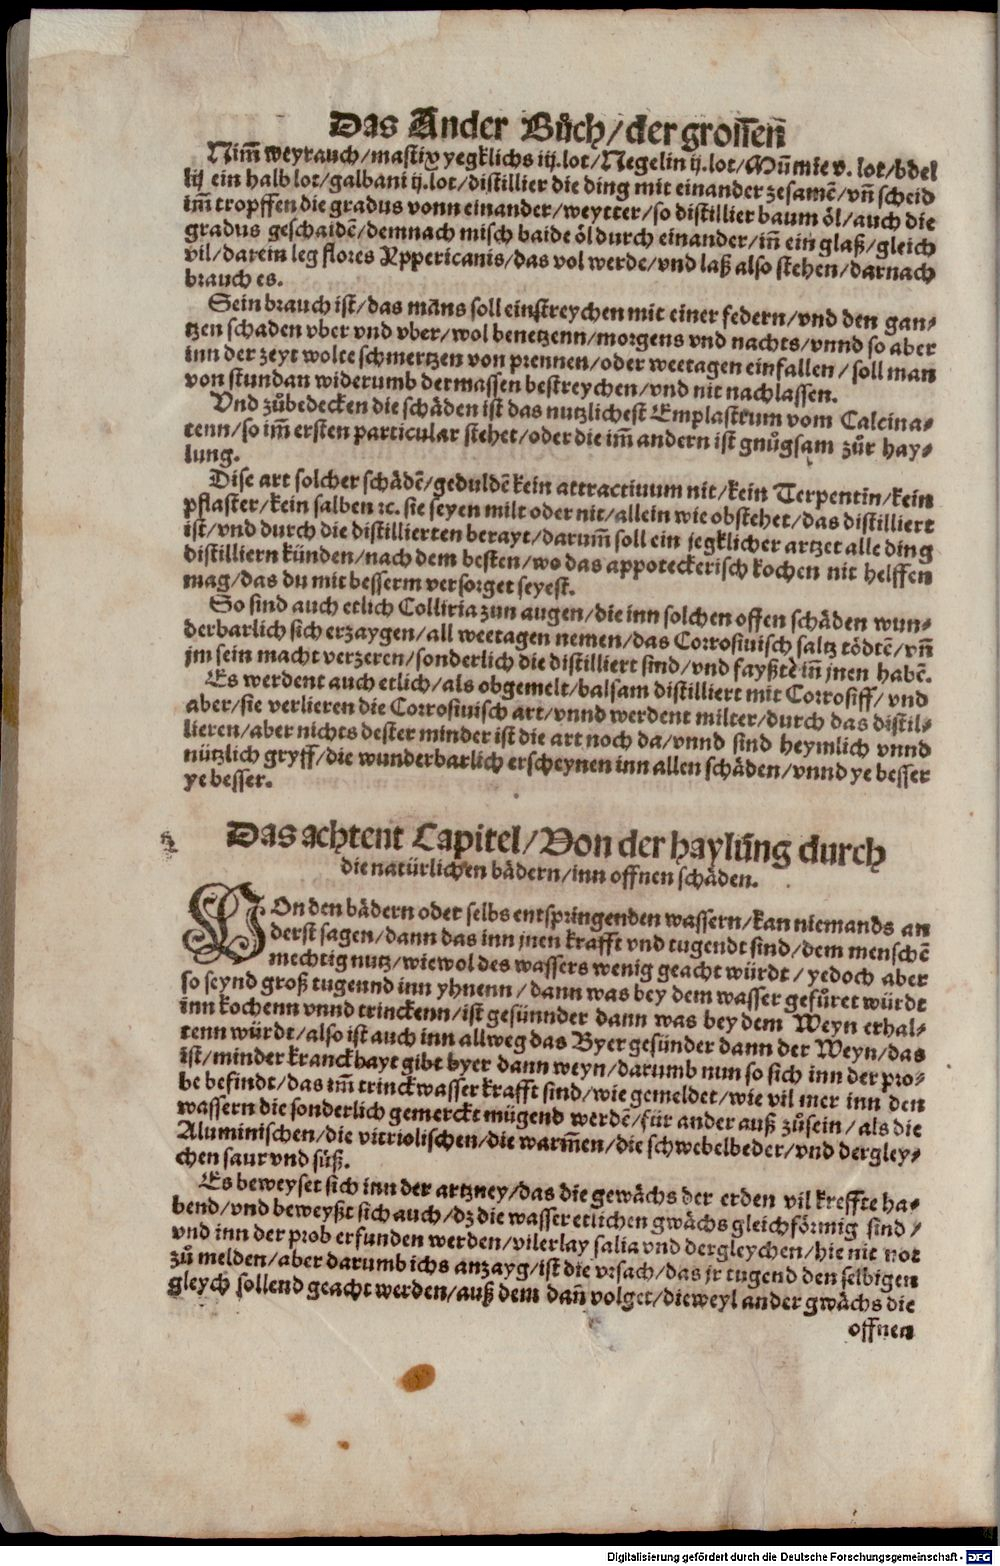 Das Ander Bůch/der grossen̄
Nim̄ weyrauch/mastix yegklichs iij.lot/Negelin ij.lot/Mūmie v. lot/bdel
lij ein halb lot/galbani ij.lot/distillier die ding mit einander zesamē/vn̄ scheid
im̄ tropffen die gradus vonn einander/weytter/so distillier baum öl/auch die
gradus geschaidē/demnach misch baide öl durch einander/in̄ ein glaß/gleich
vil/darein leg flores Xppericanis/das vol werde/vnd laß also stehen/darnach
brauch es.
Sein brauch ist/das māns soll einstreychen mit einer federn/vnd den gan⸗
tzen schaden vber vnd vber/wol benetzenn/morgens vnd nachts/vnnd so aber
inn der zeyt wolte schmertzen von prennen/oder weetagen einfallen/ soll man
von stundan widerumb dermassen bestreychen/vnd nit nachlassen.
Vnd zůbedecken die schäden ist das nutzlichest Emplastrum vom Calcina⸗
tenn/so im̄ ersten particular stehet/oder die im̄ andern ist gnůgsam zůr hay⸗
lung.
Dise art solcher schädē/geduldē kein attractiuum nit/kein Terpentin/kein
pflaster/kein salben ꝛc. sie seyen milt oder nit/allein wie obstehet/das distilliert
ist/vnd durch die distillierten berayt/darum̄ soll ein jegklicher artzet alle ding
distilliern künden/nach dem besten/wo das appoteckerisch kochen nit helffen
mag/das du mit besserm versorget seyest.
So sind auch etlich Colliria zun augen/die inn solchen offen schäden wun⸗
derbarlich sich erzaygen/all weetagen nemen/das Corrosiuisch saltz tödtē/vn̄
jm sein macht verzeren/sonderlich die distilliert sind/vnd fayßtē in̄ jnen habē.
Es werdent auch etlich/als obgemelt/balsam distilliert mit Corrosiff/vnd
aber/sie verlieren die Corrosiuisch art/vnnd werdent milter/durch das distil⸗
lieren/aber nichts dester minder ist die art noch da/vnnd sind heymlich vnnd
nützlich gryff/die wunderbarlich erscheynen inn allen schäden/vnnd ye besser
ye besser.
Das achtent Capitel/Von der haylūng durch
die natürlichen bädern/inn offnen schäden.
VOn den bädern oder selbs entspringenden wassern/kan niemands an
derst sagen/dann das inn jnen krafft vnd tugendt sind/dem menschē
mechtig nutz/wiewol des wassers wenig geacht würdt/ yedoch aber
so seynd groß tugennd inn yhnenn/dann was bey dem wasser gefůret würdt
inn kochenn vnnd trinckenn/ist gesünnder dann was bey dem Weyn erhal⸗
tenn würdt/also ist auch inn allweg das Byer gesünder dann der Weyn/das
ist/minder kranckhayt gibt byer dann weyn/darumb nun so sich inn der pro⸗
be befindt/das im̄ trinckwasser krafft sind/wie gemeldet/wie vil mer inn den
wassern die sonderlich gemerckt mügend werdē/für ander auß zůsein/ als die
Aluminischen/die vitriolischen/die warm̄en/die schwebelbeder/vnd dergley⸗
chen saur vnd süß.
Es beweyset sich inn der artzney/das die gewächs der erden vil kreffte ha⸗
bend/vnd beweyßt sich auch/dz die wasser etlichen gwächs gleichförmig sind/
vnd inn der prob erfunden werden/vilerlay salia vnd dergleychen/hie nit not
zů melden/aber darumb ichs anzayg/ist die vrsach/das jr tugend den selbigen
gleych sollend geacht werden/auß dem dan̄ volget/dieweyl ander gwächs die
offnen
Digitalisierung gefördert durch die Deutsche Forschungsgemeinschaft - DFG